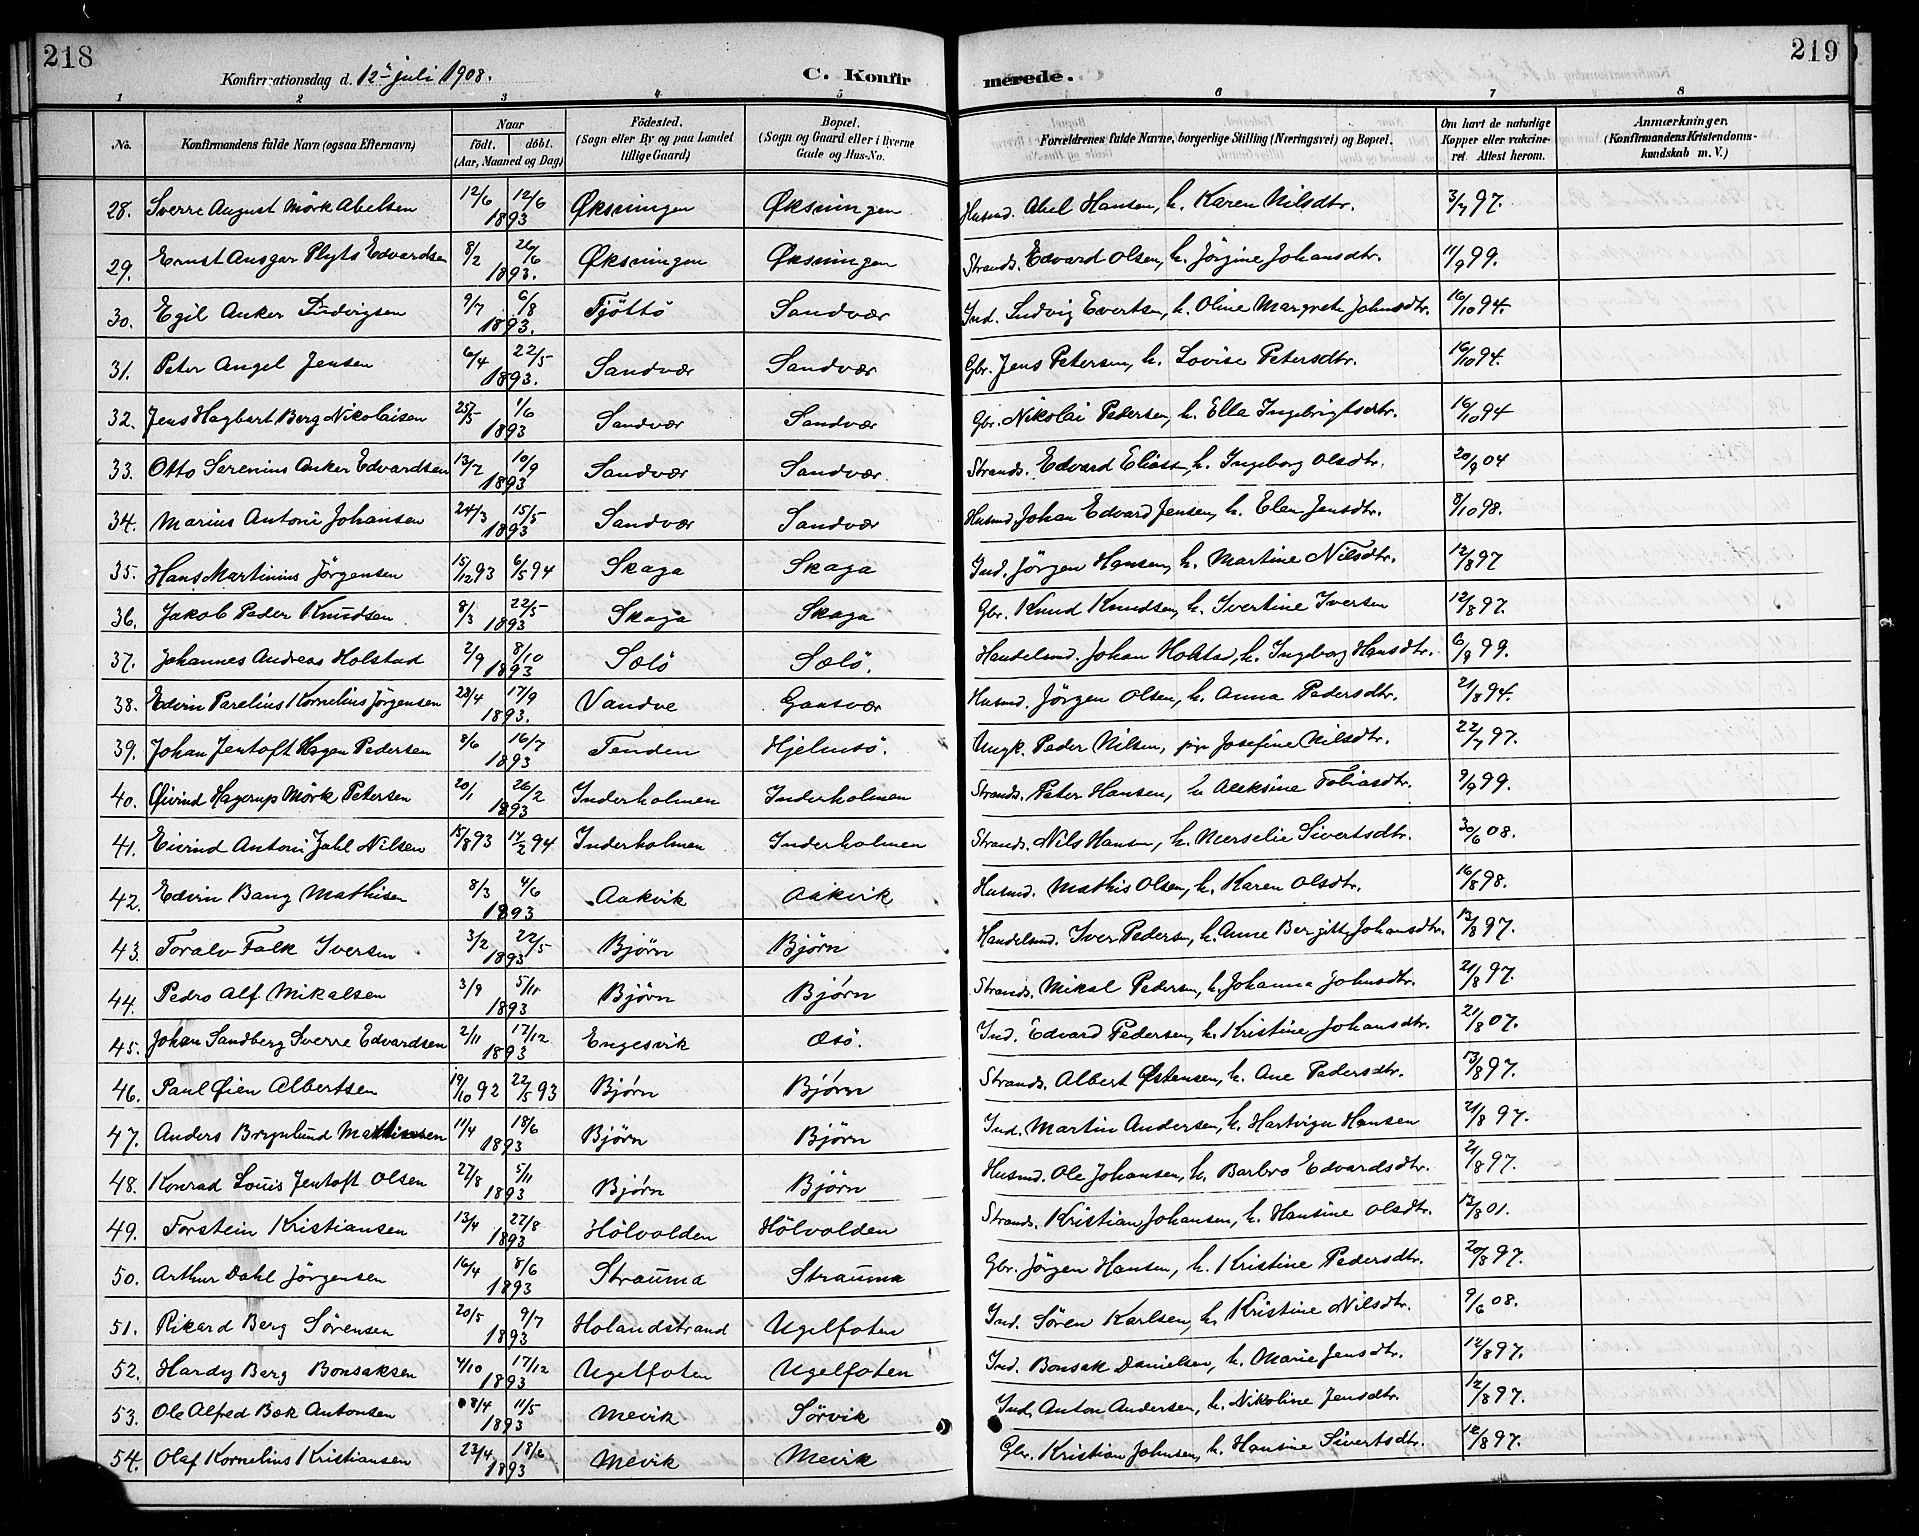 218
219
Konfirmationsdag d. 12te juli 1908.
C. Konfirmerede.
1 2 3 4 5 6 7 8
No.
Konfirmandens fulde Navn (ogsaa Efternavn)
Naar
födt. döbt.
(Aar, Maaned og Dag)
Födested.
(Sogn eller By og paa Landet
tillige Gaard)
Bopæl.
(Sogn og Gaard eller i Byerne
Gade og Hus-No.
Forældrenes fulde Navne, borgerlige Stilling (Næringsvei) og Bopæl.
Om havt de naturlige
Kopper eller vakcine-
ret. Attest herom.
Anmærkninger.
(Konfirmandens Kristendoms-
kundskab m. V.)
28. Sverre August Mörk Abelsen 12/6 12/6 1893 Øksningen Øksningen Husmd. Abel Hansen, h. Karen Nilsdtr. 3/7 97.
29. Ernst Ansgar Plyts Edvardsen 8/2 26/6 1893. Øksningen Øksningen Strands. Edvard Olsen, h. Jörgine Johansdtr. 11/9 99.
30. Egil Anker Ludvigsen 9/7 6/8 1893. Tjöttö Sandvær Ind. Ludvig Evertsen, h. Oline Margrete Johnsdtr. 16/10 94.
31. Peter Angel Jensen 6/4 22/5 1893. Sandvær Sandvær Gbr. Jens Petersen, h. Lovise Petersdtr. 16/10 94.
32. Jens Hagbart Berg Nikolaisen 25/5 1/6 1893 Sandvær Sandvær Gbr. Nikolai Pedersen, h. Ella Ingebrigtsdtr. 16/10 94
33. Otto Serenius Anker Edvardsen 13/7 10/9 1893 Sandvær Sandvær. Strands. Edvard Eliass., h. Ingeborg Olsdtr. 20/9 04
34. Marius Antoni Johansen 24/3 15/5 1893 Sandvær Sandvær Husmd. Johan Edvard Jensen, h. Elen Jensdtr. 8/10 98.
35. Hans Martinius Jörgensen 15/12 93 6/5 94 Skaga Skaga Ind. Jörgen Hansen, h. Martine Nilsdtr. 12/8 97
36. Jakob Peder Knudsen 8/3 22/5 1893 Skaga Skaga Gbr. Knud Knudsen, h. Ivertine Iversen 12/8 97.
37. Johannes Andreas Holstad 2/9 8/10 1893 Sølö Sølö. Handelsmd. Johan Holstad, h. Ingeborg Hansdtr. 6/9 99.
38. Edvin Parelius Kornelius Jörgensen 23/4 17/9 1893. Vandve Gaasvær Husmd. Jörgen Olsen, h. Anna Pedersdtr. 21/8 94.
39. Johan Jentoft Hagen Pedersen 8/6 16/7 1893 Tenden Hjelmsö. Ungk. Peder Nilsen, pige Josefine Nilsdtr. 22/7 97.
40. Øivind Hagerup Mörk Petersen 20/1 26/2 1893 Inderholmen Inderholmen Strands. Peter Hansen, h. Aleksine Tobiasdtr. 9/9 99.
41. Eivind Antoni Jahl Nilsen 15/8 93 17/2 94 Inderholmen Inderholmen Strands. Nils Hansen, h. Merselie Sivertsdtr. 30/6 08.
42. Edvin Bang Mathisen 8/3 4/6 1893 Aakvik Aakvik Husmd. Mathis Olsen, h. Karen Olsdtr. 16/8 98.
43. Toralv Falk Iversen 3/2 22/5 1893 Bjørn Bjørn Handelsmd. Iver Pedersen, h. Anne Bergitte Johansdtr. 13/8 97.
44. Pedro Alf Mikalsen 3/9 5/11 1893 Bjørn Bjørn Strands. Mikal Pedersen, h. Johanna Johnsdtr. 21/8 97.
45. Johan Sandberg Sverre Edvardsen 2/11 17/12 1893 Engesvik Øsö. Ind. Edvard Pedersen, h. Kristine Johansdtr. 21/8 07.
46. Paul Øien Albertsen 19/10 92 22/5 93 Bjørn Bjørn Strands. Albert Østensen, h. Ane Pedersdtr. 13/8 97.
47. Anders Brynlund Mathisen 11/4 18/6 1893 Bjørn Bjørn Ind. Martin Andersen, h. Hartvign Hansen 21/8 97.
48. Konrad Louis Jentoft Olsen 27/8 5/11 1893 Bjørn Bjørn Husmd. Ole Johansen, h. Barbro Edvardsdtr. 21/8 97.
49. Torstein Kristiansen 13/4 27/8 1893 Hölvolden Hölvolden Strands. Kristian Johansen, h. Hansine Olsdtr. 13/8 01.
50. Arthur Dahl Jörgensen 16/4 8/6 1893 Strauma Strauma Gbr. Jörgen Hansen, h. Kristine Pedersdtr. 20/8 97.
51. Rikard Berg Sörensen 20/5 9/7 1893 Holandstrand Ugelfoten Ind. Søren Karlsen, h. Kristine Nilsdtr. 9/6 08.
52. Hardy Berg Bonsaksen 4/10 17/12 1893 Ugelfoten Ugelfoten Ind. Bonsak Danielsen, h. Marie Jensdtr. 12/8 97.
53. Ole Alfred Bæk Antonsen 8/4 11/5 1893 Mevik Sørvik Ind. Anton Andersen, h. Nikoline Jensdtr. 12/8 97.
54. Olaf Kornelius Kristiansen 23/4 18/6 1893 Mevik Meivik Gbr. Kristian Johnsen, h. Hansine Sivertsdtr. 12/8 97.